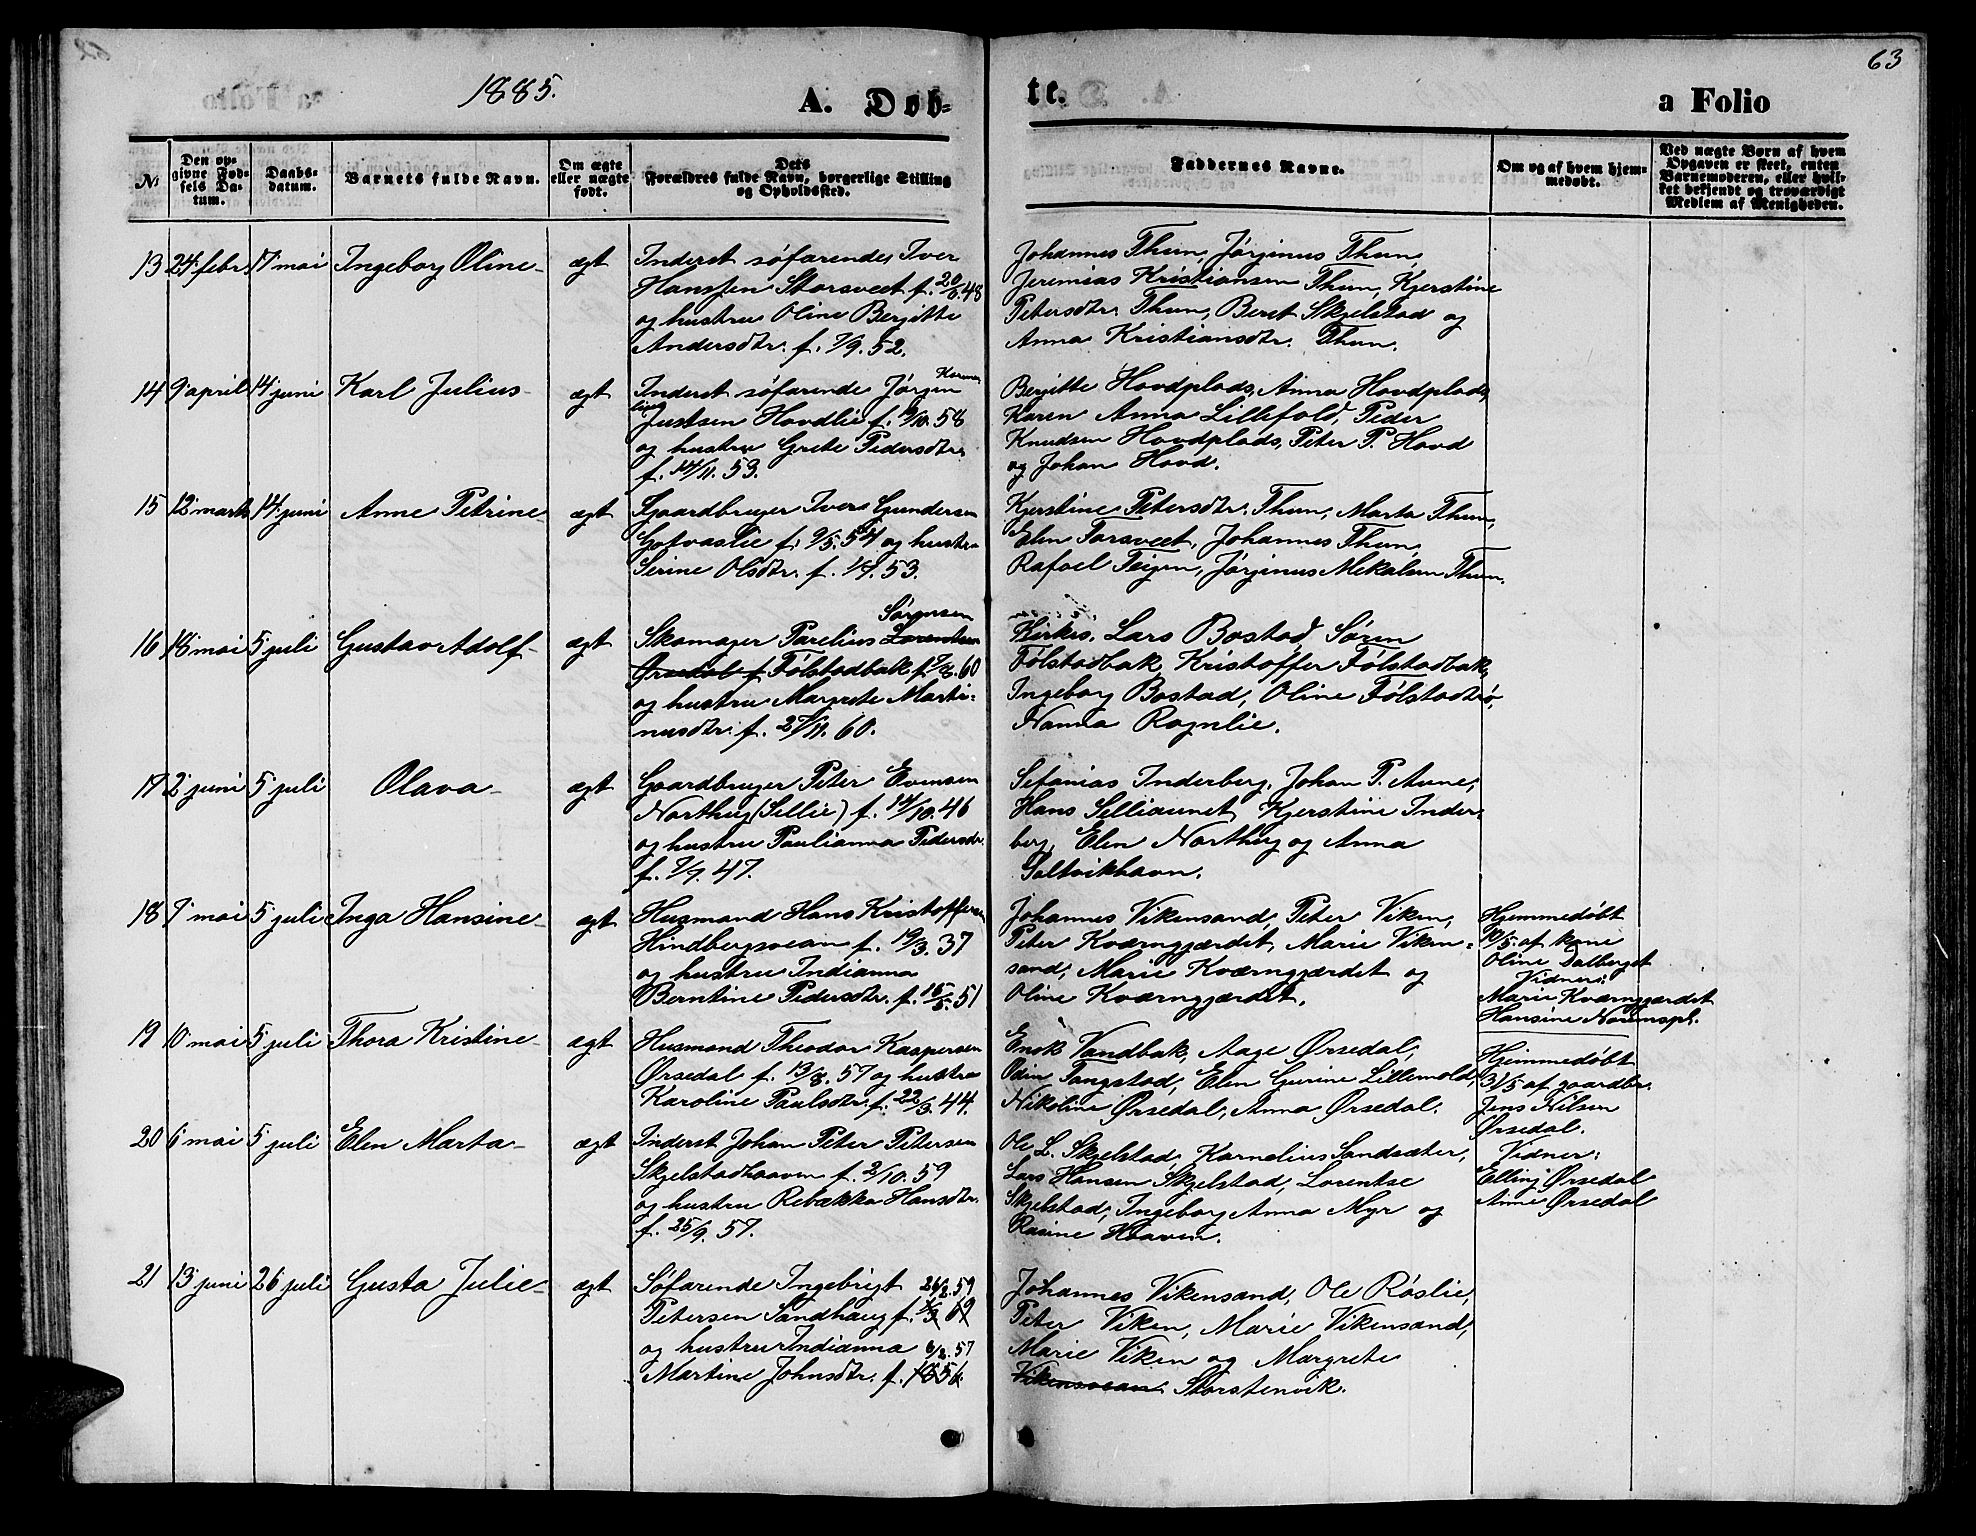 63
1885.
A. Døb=
te.
a Folio
No
Den op=
givne Fød=
sels Da=
tum.
Daabs=
datum.
Barnets fulde Navn.
Om ægte
eller uægte
født.
Dets
Forældres fulde Navn, borgerlige Stilling
og Opholdssted.
Faddernes Navne.
Om og af hvem hjem=
medøbt.
Ved uægte Børn af hvem
Opgaven er skeet, enten
Barnemoderen, eller hvil=
ket bekjendt og troværdigt
Medlem af Menigheden.
13 24 febr. 17 mai Ingeborg Oline ægt
Inderst søfarende Iver
Hanssen Storsveet f. 48
og hustru Oline Bergitte
Andersdtr. f. 7/9. 52.
Johannes Thun, Jørginus Thun,
Jeremias Kristiansen Thun, Kjerstine
Petersdtr. Thun, Beret Skjelstad og
Anna Kristiansdtr. Thun.
14 9 april 14 juni Karl Julius ægt
Inderst søfarende Jørgen
Justsen Hovdlie f. 58
og hustru Grete Pedersdtr.
f. 14/11. 53.
Bergitte Hovdplads, Anna Hovdplads,
Karen Anna Lillefold, Peder
Knudsen Hovdplads, Peter P. Hovd
og Johan Hovd.
15 12 marts 14 juni Anne Petrine ægt
Gaardbruger Iver Gundersen
Gotvaslie f. 9/5. 54 og hustru
Serine Olsdtr. f. 53.
Kjerstine Petersdtr. Thun, Marta Thun,
Elen Torsveet, Johannes Thun,
Rafael Teigen, Jørginus Mikalsen Thun.
16 18 mai 5 juli Gustav Adolf ægt
Sørensen
Skomager Parelius Lorentsen
Ørsedal f. Følstadbak f. 7/8. 60
og hustru Margrete Marti-
nusdtr. f. 60.
Kirkes. Lars Bostad, Søren
Følstadbak, Kristoffer Følstadbak,
Ingeborg Bostad, Oline Følstadtrø,
Nanna Rognlie.
17 2 juni 5 juli Olava ægt
Gaardbruger Peter Evensen
Northug (Sellie) f. 14/10. 46
og hustru Paulianna Pedersdtr.
f. 7/9. 47.
Sefanias Inderberg, Johan P. Aune,
Hans Selliaunet, Kjerstine Inder-
berg, Elen Northug og Anna
Saltvikhavn.
18 7 mai 5 juli Inga Hansine ægt
Husmand Hans Kristoffersen
Hindbergsvean f. 19/3. 37
og hustru Indianna
Berntine Pedersdtr. f. 16/5. 51
Johannes Vikensand, Peter Viken,
Peter Kværngjærdet, Marie Viken-
sand, Marie Kværngjærdet og
Oline Kværngjærdet.
Hjemmedøbt
10/5. af kone
Oline Dalberget
Vidner:
Marie Kværngjærdet
Hansine Noremspl.
19 10 mai 5 juli Thora Kristine ægt
Husmand Theodor Kaspersen
Ørsedal f. 13/8. 57 og hustru
Karoline Paulsdtr. f. 22/3. 44.
Enok Vandbak, Aage Ørsedal,
Odin Tangstad, Elen Gurine Lillemold,
Nikoline Ørsedal, Anna Ørsedal.
Hjemmedøbt
31/5 af gaardbr.
Jens Nilsen
Ørsedal.
Vidner:
Elling Ørsedal
Anne Ørsedal
20 6 mai 5 juli Elen Marta ægt
Inderst Johan Peter Petersen
Skjelstadhaaven f. 2/10. 59
og hustru Rebækka Hansdtr.
f. 25/9. 57.
Ole L. Skjelstad, Karnelius Sandsæter,
Lars Hansen Skjelstad, Lorentse
Skjelstad, Ingeborg Anna Myr og
Rasine Haaven.
21 13 juni 26 juli Gusta Julie ægt
Søfarende Ingebrigt 26/2. 59
Petersen Sandhaug f.
og hustru Indianna 6/2. 57
Martine Johnsdtr. f. 1856.
Johannes Vikensand, Ole Røslie,
Peter Viken, Marie Vikensand,
Marie Viken og Margrete
Vikensvean Storstenvik.